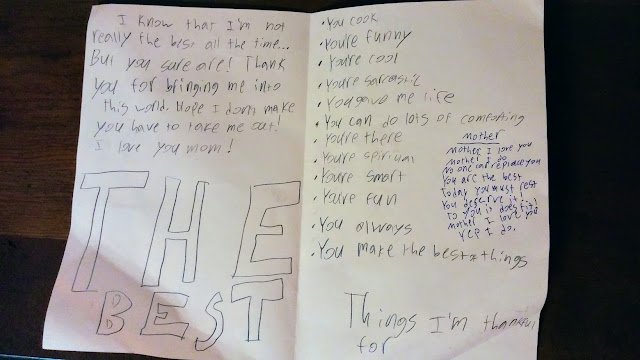 I know that I'm not
really the best all the time...
But you sure are! Thank
you for bringing me into
this world. Hope I don't make
you have to take me out!
I love you mom!
THE
BEST
• You cook
• You're funny
• You're cool
• You're sarcastic
• You gave me life
• You can do lots of comforting
• You're there
• You're spiritual
• You're smart
• You're fun
• You always
• You make the best * things
Mother
Mother I love you
Mother I do
No one can replace you
You are the best
Today you must rest
You deserve it!
To you it does fit!
Mother I love you
Yep I do.
Things I'm thankful
for